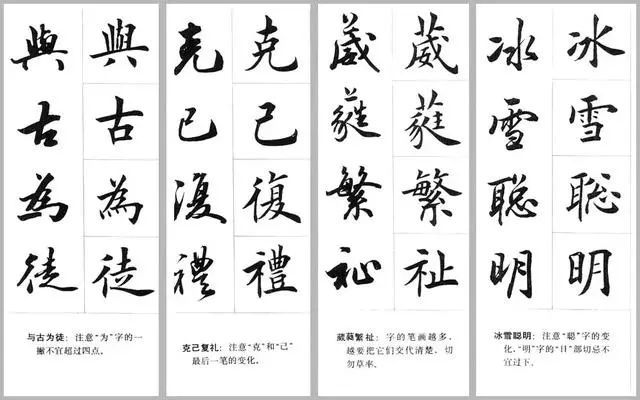 與 與
古 古
為 為
徒 徒
与古为徒：注意“为”字的一
撇不宜超过四点。
克 克
己 己
復 復
禮 禮
克己复礼：注意“克”和“己”
最后一笔的变化。
葳 葳
蕤 蕤
繁 繁
祉 祉
葳蕤繁祉：字的笔画越多，
越要把它们交代清楚，切
勿草率。
冰 冰
雪 雪
聡 聡
明 明
冰雪聪明：注意“聪”字的变
化，“明”字的“日”部切忌不
宜过下。